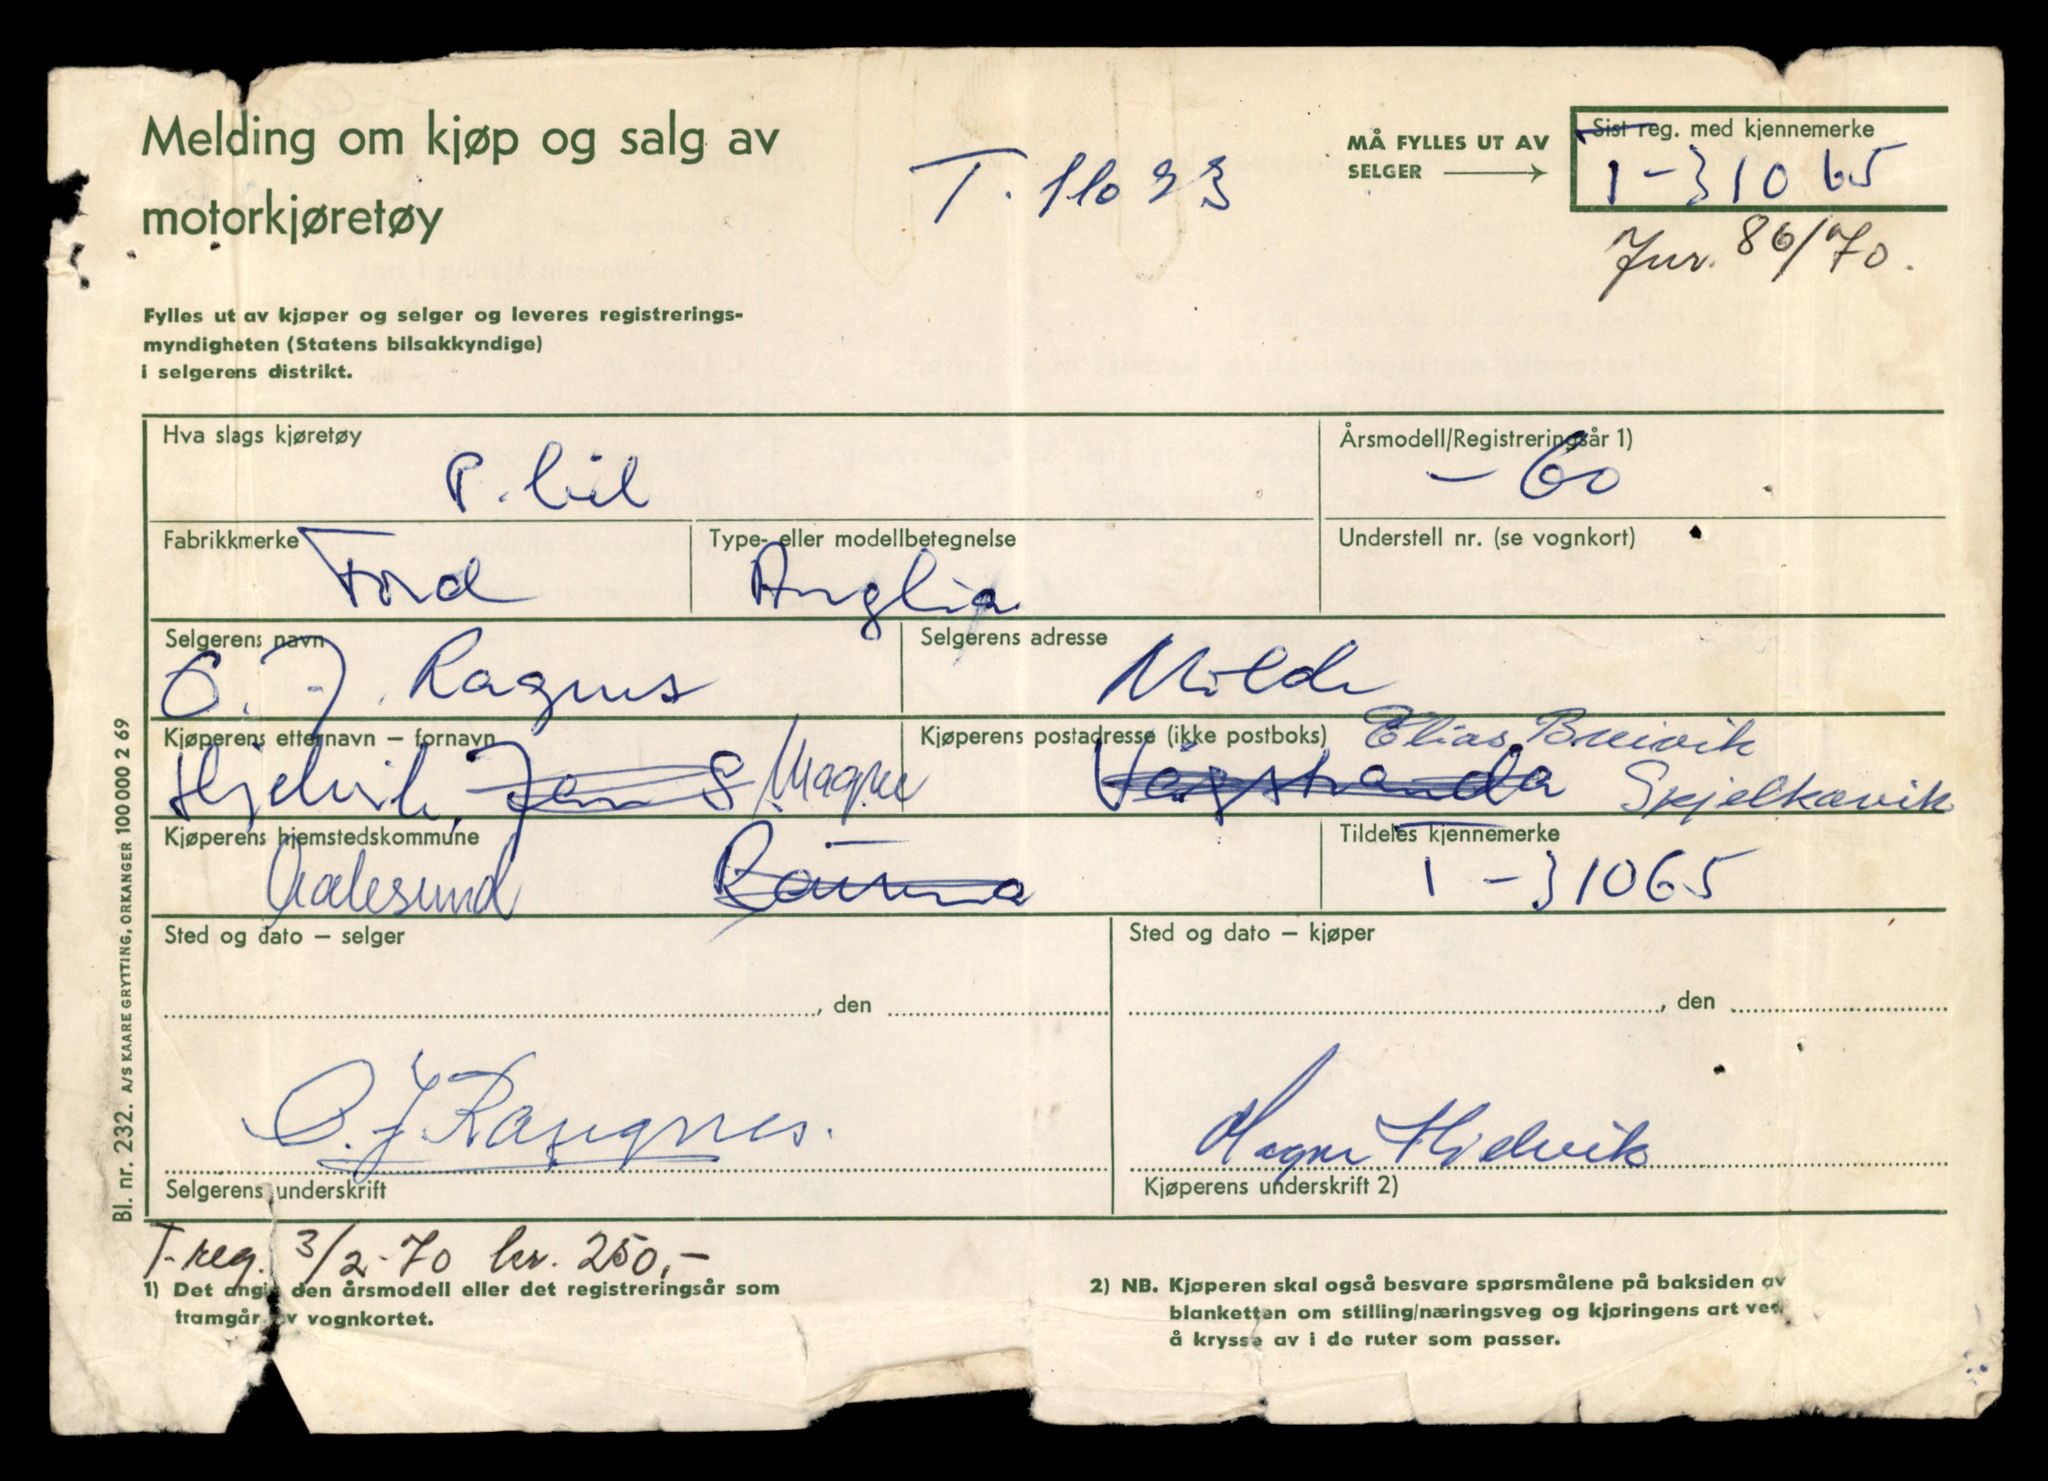 Melding om kjøp og salg av
motorkjøretøy
T. 11023
MÅ FYLLES UT AV
SELGER
Sist reg. med kjennemerke
1-31065
Jnr. 86/70.
Fylles ut av kjøper og selger og leveres registrerings-
myndigheten (Statens bilsakkyndige)
i selgerens distrikt.
Hva slags kjøretøy
P. bil
Årsmodell/Registreringsår 1)
- 60
Fabrikkmerke
Ford
Type- eller modellbetegnelse
Anglia
Understell nr. (se vognkort)
Selgerens navn
O. J. Ragnes
Selgerens adresse
Molde
Kjøperens etternavn – fornavn
Hjelvik, Jan S/Magne
Kjøperens postadresse (ikke postboks)
Elias Breivik
Vågstranda Spjelkavik
Kjøperens hjemstedskommune
Aalesund Rauma
Tildeles kjennemerke
1-31065
Sted og dato – selger
, den
Sted og dato – kjøper
, den
O. J. Rangnes.
Selgerens underskrift
Magne Hjelvik
Kjøperens underskrift 2)
T-reg. 3/2-70 kr. 250,-
1) Det angis den årsmodell eller det registreringsår som
framgår av vognkortet.
2) NB. Kjøperen skal også besvare spørsmålene på baksiden av
blanketten om stilling/næringsveg og kjøringens art ved
å krysse av i de ruter som passer.
Bl. nr. 232. A/S KAARE GRYTTING, ORKANGER 100 000 2 69